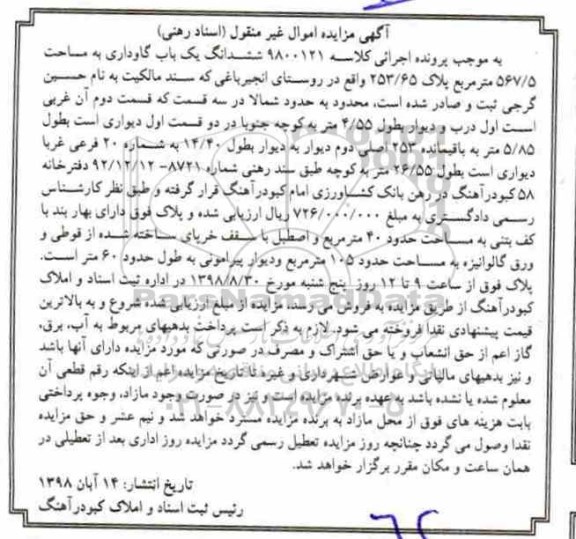 آگهی مزایده اموال غیر منقول (اسناد رهنی)
به موجب پرونده اجرائی کلاسه ۹۸۰۰۱۲۱ ششدانگ یک باب گاوداری به مساحت
۵۶۷/۵ مترمربع پلاک ۲۵۳/۶۵ واقع در روستای انجیرباغی که سند مالکیت به نام حسین
گرجی ثبت و صادر شده است، محدود به حدود شمالا در سه قسمت که قسمت دوم آن غربی
است اول درب و دیوار بطول ۴/۵۵ متر به کوچه جنوبا در دو قسمت اول دیواری است بطول
۵/۸۵ متر به باقیمانده ۲۵۳ اصلی دوم دیوار به دیوار بطول ۱۴/۴۰ به شماره ۲۰ فرعی غربا
دیواری است بطول ۲۶/۵۵ متر به کوچه طبق سند رهنی شماره ۸۷۲۱- ۹۲/۱۲/۱۲ دفترخانه
۵۸ کبودرآهنگ در رهن بانک کشاورزی امام کبودرآهنگ قرار گرفته و طبق نظر کارشناس
رسمی دادگستری به مبلغ ۷۲۶/۰۰۰/۰۰۰ ریال ارزیابی شده و پلاک فوق دارای بهار بند با
کف بتنی به مساحت حدود ۴۰ مترمربع و اصطبل با سقف خرپای ساخته شده از قوطی و
ورق گالوانیزه به مساحت حدود ۱۰۵ مترمربع ودیوار پیرامونی به طول حدود ۶۰ متر است.
پلاک فوق از ساعت ۹ تا ۱۲ روز پنج شنبه مورخ ۱۳۹۸/۸/۳۰ در اداره ثبت اسناد و املاک
کبودرآهنگ از طریق مزایده به فروش می رسد، مزایده از مبلغ ارزیابی شده شروع و به بالاترین
قیمت پیشنهادی نقدا فروخته می شود. لازم به ذکر است پرداخت بدهیهای مربوط به آب، برق،
گاز اعم از حق انشعاب و یا حق اشتراک و مصرف در صورتی که مورد مزایده دارای آنها باشد
و نیز بدهیهای مالیاتی و عوارض شهرداری و غیره تا تاریخ مزایده اعم از اینکه رقم قطعی آن
معلوم شده یا نشده باشد به عهده برنده مزایده است و نیز در صورت وجود مازاد، وجوه پرداختی
بابت هزینه های فوق از محل مازاد به برنده مزایده مسترد خواهد شد و نیم عشر و حق مزایده
نقدا وصول می گردد چنانچه روز مزایده تعطیل رسمی گردد مزایده روز اداری بعد از تعطیلی در
همان ساعت و مکان مقرر برگزار خواهد شد.
تاریخ انتشار: ۱۴ آبان ۱۳۹۸
رئیس ثبت اسناد و املاک کبودرآهنگ